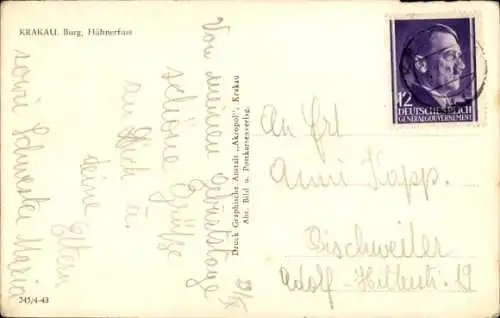 KRAKAU. Burg, Hühnerfuss
Von meinen Geburtstage
schöne Grüße
an Dich u.
deine Eltern
sowie Schwester Maria
245/4-43
Druck Graphische Anstalt „Akropol", Krakau
Abt. Bild u. Postkartenverlag.
12
DEUTSCHES REICH
GENERALGOUVERNEMENT
An Frl
Anni Kapp.
Bischweiler
Adolf-Hitlerstr. 19